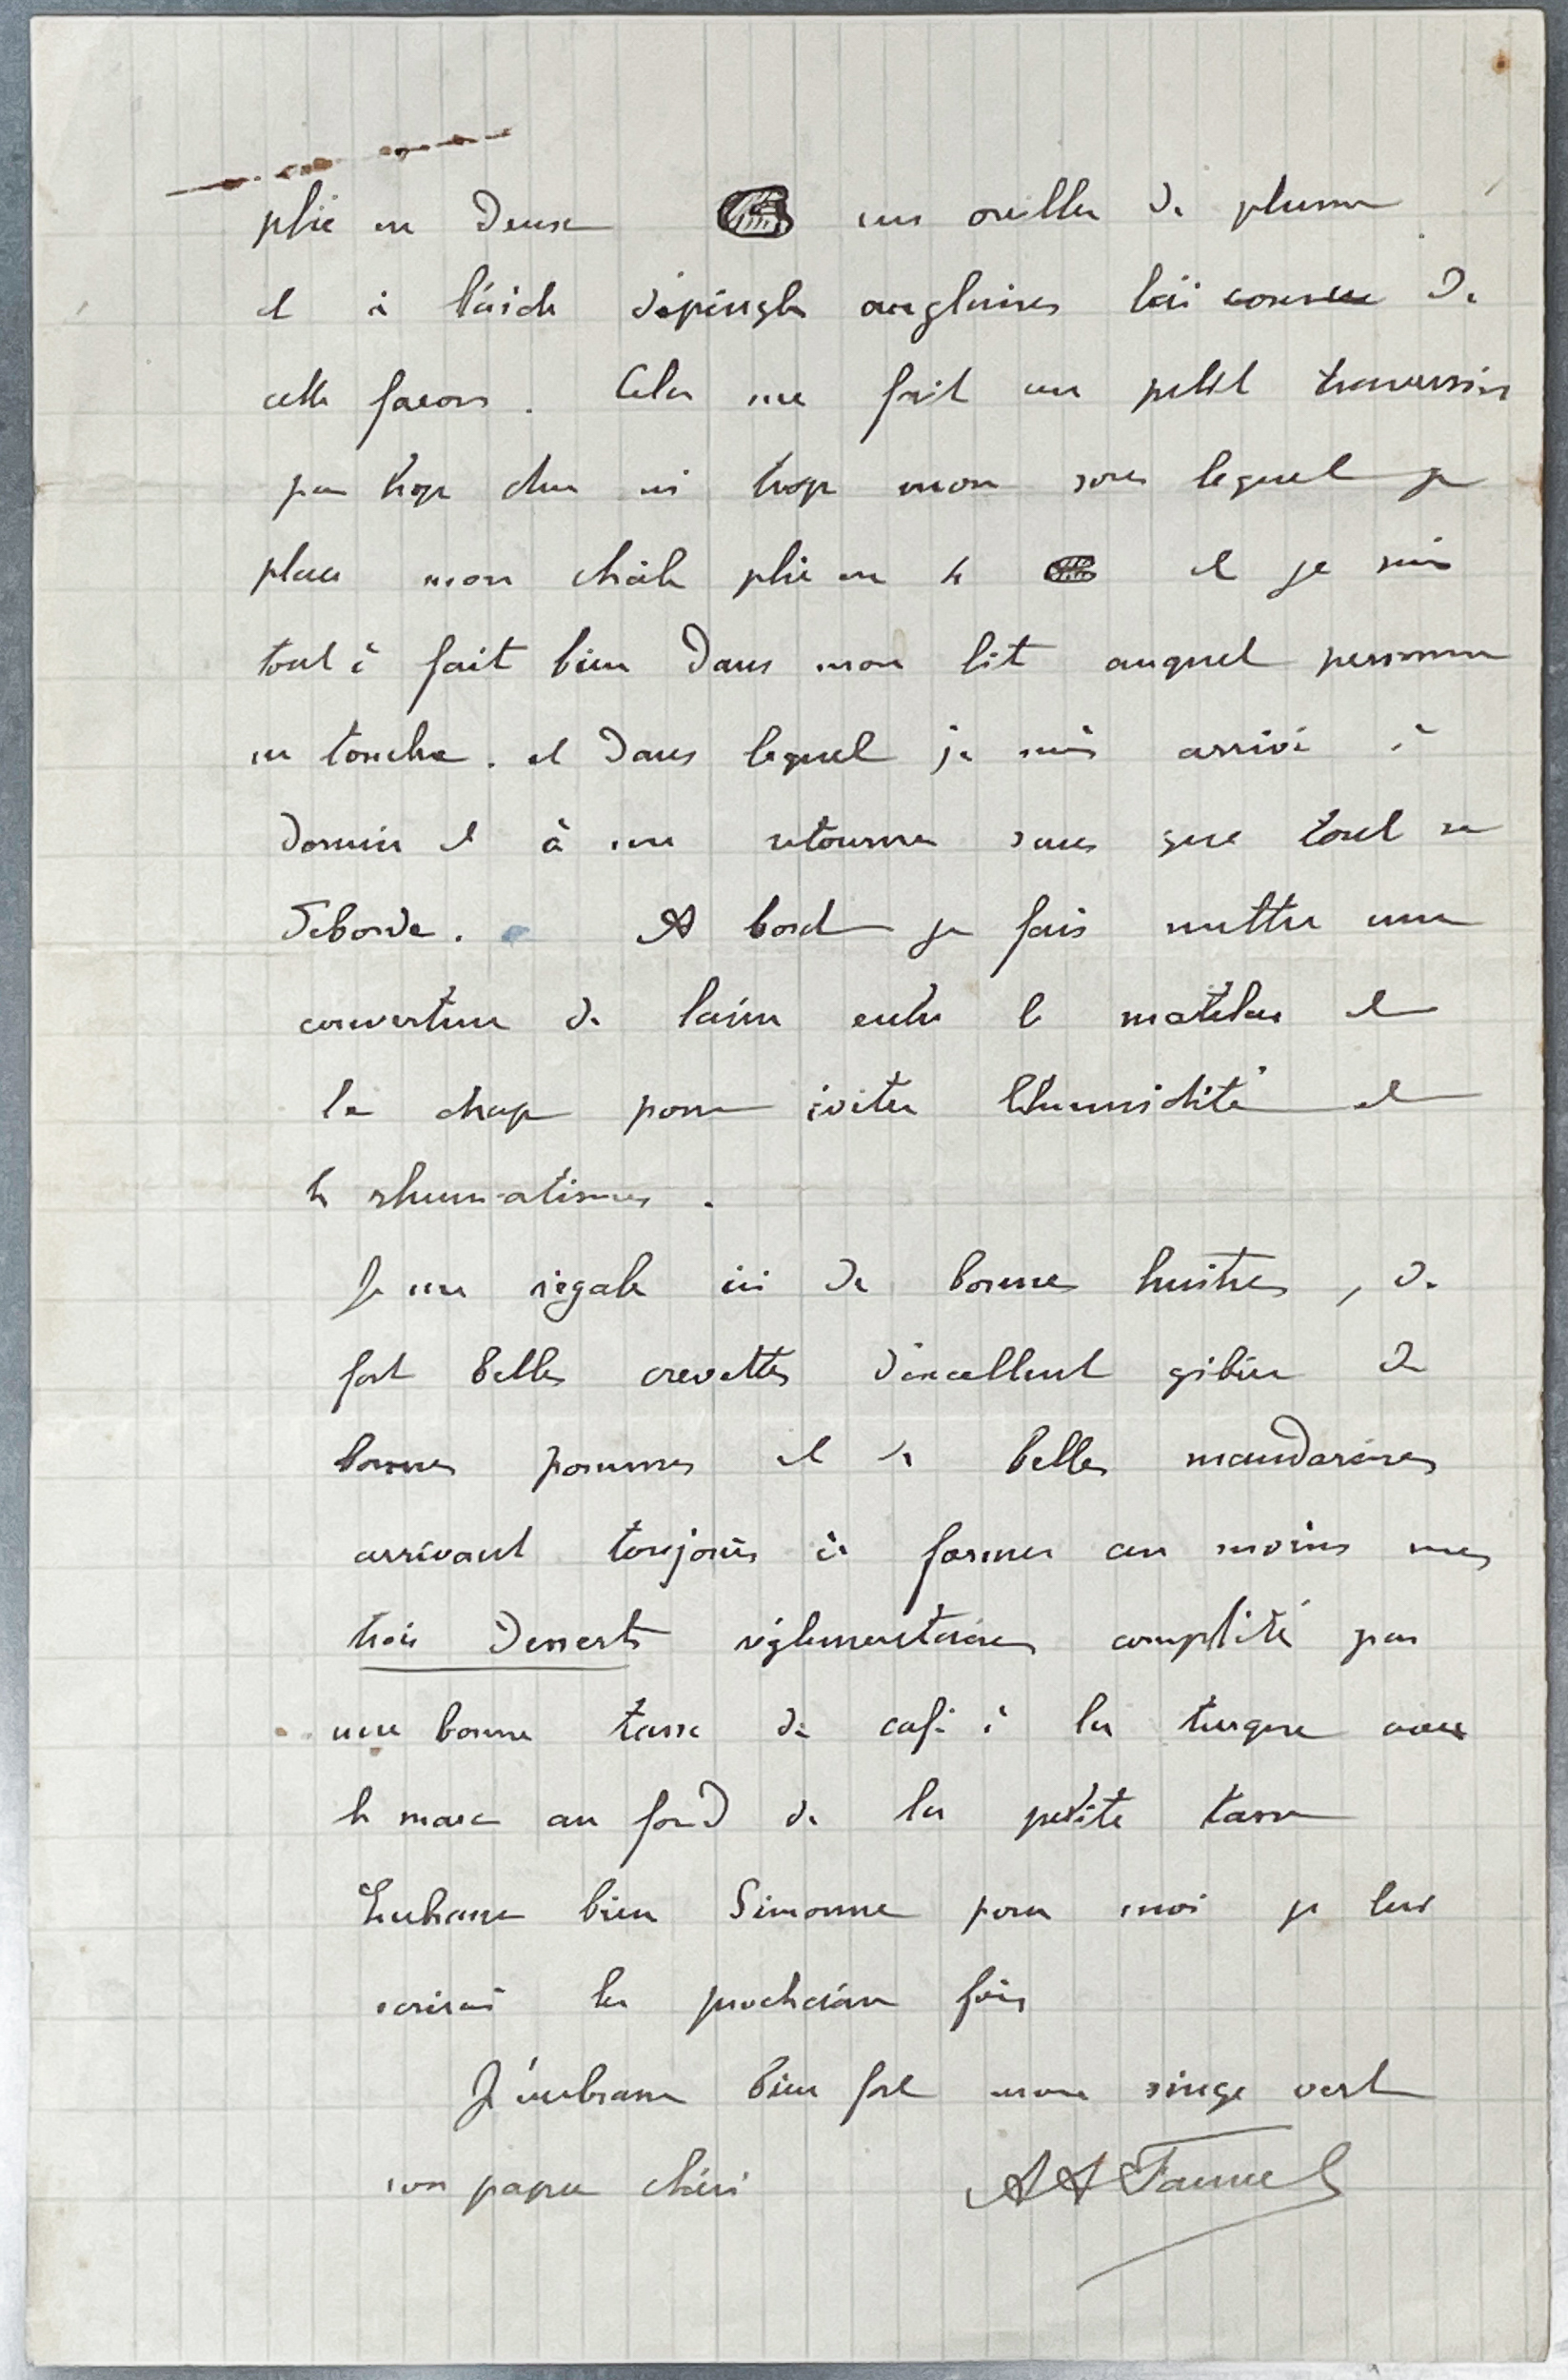 plié en deux un oreiller de plume
et à l'aide d'épingles anglaises l'ai cousu de
cette façon. Cela me fait un petit traversin
pas trop dur ni trop mou sous lequel je
place mon châle plié en 4 et je suis
tout à fait bien dans mon lit auquel personne
ne touche. et dans lequel je suis arrivé à
dormir et à me retourner sans que tout se
déborde. A bord je fais mettre une
couverture de laine entre le matelas et
le drap pour éviter l'humidité et
le rhumatismes.
Je me régale ici de bonnes huitres, de
fort belles crevettes d'excellent gibier de
bonnes pommes et de belles mandarines
arrivant toujours à former au moins mes
trois desserts réglementaires complété par
une bonne tasse de café à la turque avec
le marc au fond de la petite tasse
Embrasse bien Simonne pour moi je lui
écrirai la prochaine fois
J'embrasse bien fort mon singe vert
son papa chéri